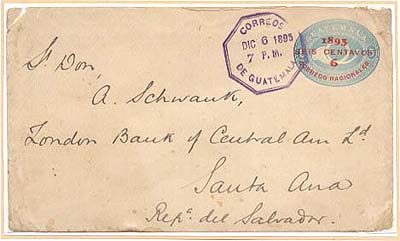 CORREOS
DIC 6 1895
7 P.M.
DE GUATEMALA
1895
SEIS CENTAVOS
6
CORREOS NACIONALES
Sr Don,
A. Schwauk,
London Bank of Central Am Ld
Santa Ana
Repa. del Salvador.